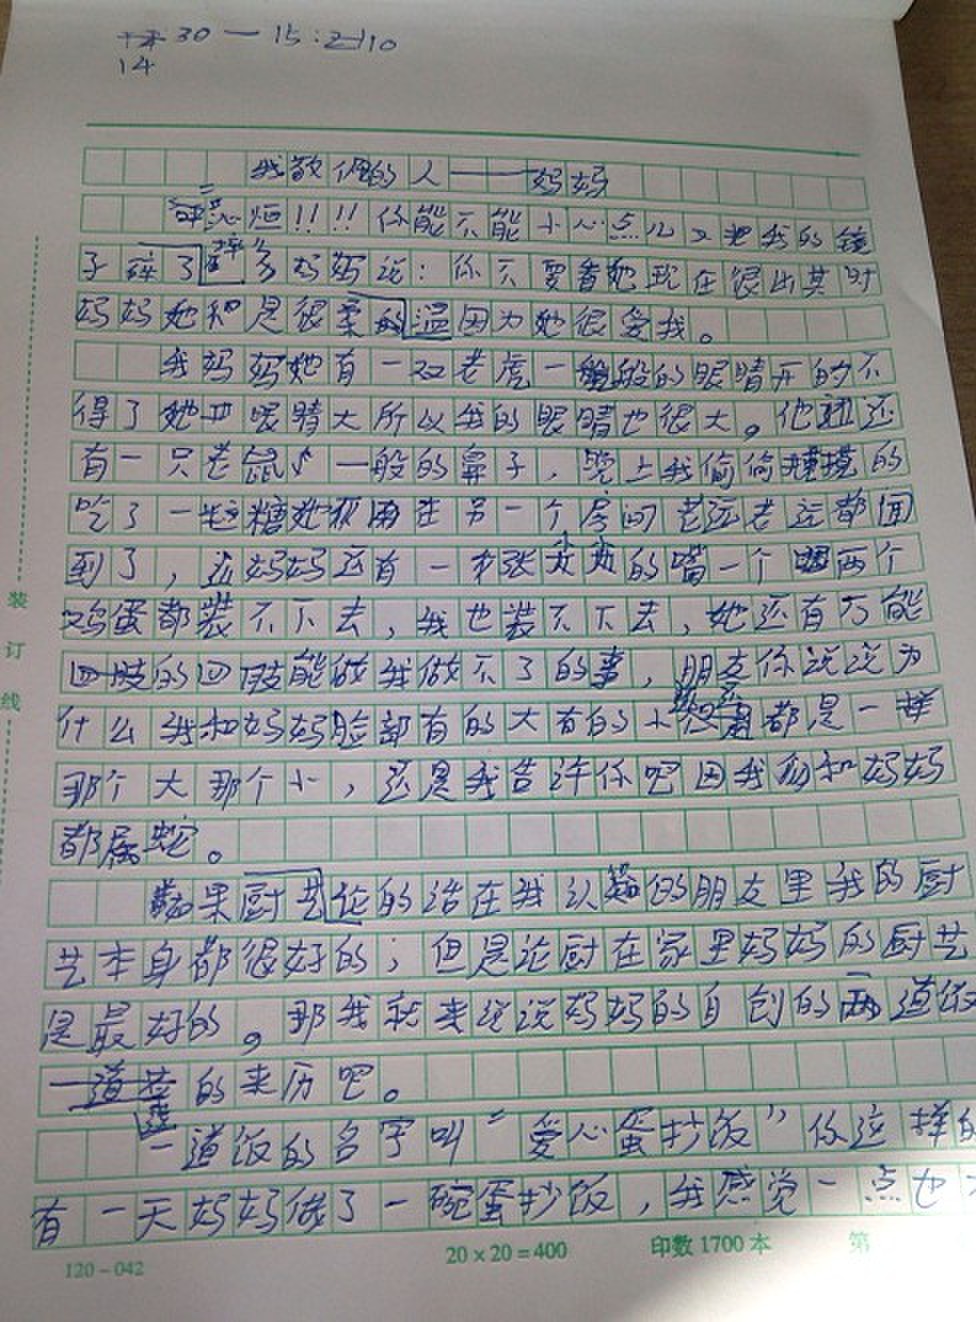 30 — 15:10
14
我敬佩的人——妈妈
!!!! 你能不能小心点儿又把我的镜
子碎了 妈妈说：你不要看她现在很出其时
妈妈她和是很柔的温因为她很爱我。
我妈妈她有一双老虎一般的眼睛开的不
得了她眼睛大所以我的眼睛也很大。他还
有一只老鼠一般的鼻子，晚上我偷偷摸摸的
吃了一糖她在另一个房间老远老远都闻
到了，妈妈还有一张的嘴一个两个
鸡蛋都装不下去，我也装不下去，她还有万能
四肢的四肢能做我做不了的事，朋友你说说为
什么我和妈妈脸部有的大有的小都是一样
那个大那个小，还是我告许你吧因我和妈妈
都属蛇。
果厨艺论的话在我认的朋友里我的厨
艺本身都很好的；但是论厨在家里妈妈的厨艺
是最好的。那我就来说说妈妈的自创的两道饭
一道菜的来历吧。
一道饭的名字叫“爱心蛋抄饭”你这样的
有一天妈妈做了一碗蛋抄饭，我感觉一点也
装
订
线
120-042
20×20=400
印数1700本
第